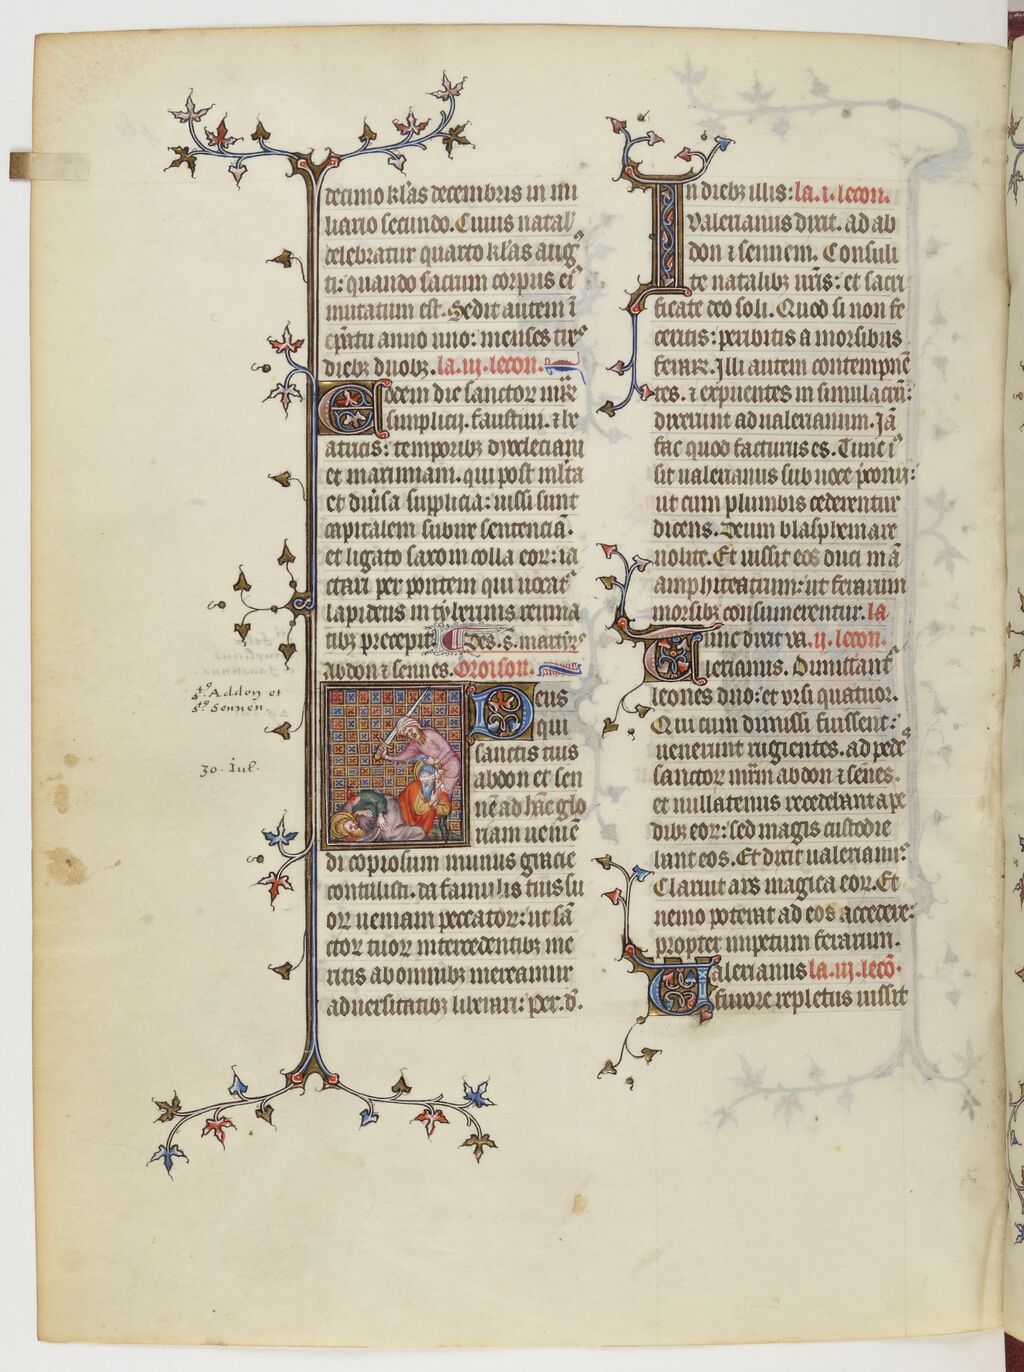 decimo kl'as decembris in mi
liario secundo. Cuius natal'
celebratur quarto kl'as aug
ti: quando sacrum corpus ei'
mutatum est. Sedit autem ī
ep̄atu anno uno: menses tres
dieb₃ duob₃. la .iij. lecon.
Eodem die sanctoꝝ mr̄e
simplicii. faustini. ⁊ be
atricis: temporib₃ dyocleciani
et maximiani. qui post ml'ta
et diu'sa supplicia: iussi sunt
capitalem subire sentenciā.
et ligato saxo in colla eoꝝ: ia
ctari per pontem qui uocat'
lapideus in tyberinis reuma
tib₃ precepit. Des .s. martirs
abdon ⁊ sennes. Oroison.
Deus
qui
sanctis tuis
abdon et sen
nē ad hāc glo
riam ueniē
di copiosum munus gracie
contulisti. da famulis tuis su
oꝝ ueniam peccatoꝝ: ut sā
ctoꝝ tuoꝝ intercedentib₃ me
ritis ab omnib₃ mereamur
aduersitatib₃ liberari: Per. d̄.
sto. Addon et
sto. Sennen.
30. iul.
In dieb₃ illis: la .i. lecon.
Valerianus dixit. ad ab
don ⁊ sennem. Consuli
te natalib₃ ur̄is: et sacri
ficate deo soli. Quod si non fe
ceritis: peribitis a morsibus
feraꝝ. Illi autem contempnē
tes. ⁊ expuentes in simulacrū:
dixerunt ad ualerianum. Iā
fac quod facturus es. Tunc i'
sit ualerianus sub uoce p̄conij:
ut cum plumbis cederentur
dicens. Deum blasphemare
nolite. Et iussit eos duci in ā
amphiteatrum: ut ferarum
morsib₃ consumerentur. la
Tunc dixit va .ii. lecon.
lerianus. Dimittant'
leones duo: et ursi quatuor.
Qui cum dimissi fuissent:
uenerunt rugientes. ad pedes
sanctoꝝ mr̄m abdon ⁊ senēs.
et nullatenus recedebant a pe
dib₃ eoꝝ: sed magis custodie
bant eos. Et dixit ualerianus:
Claruit ars magica eoꝝ. Et
nemo poterat ad eos accedere:
propter impetum ferarum.
Valerianus la .iij. lecō.
furore repletus iussit